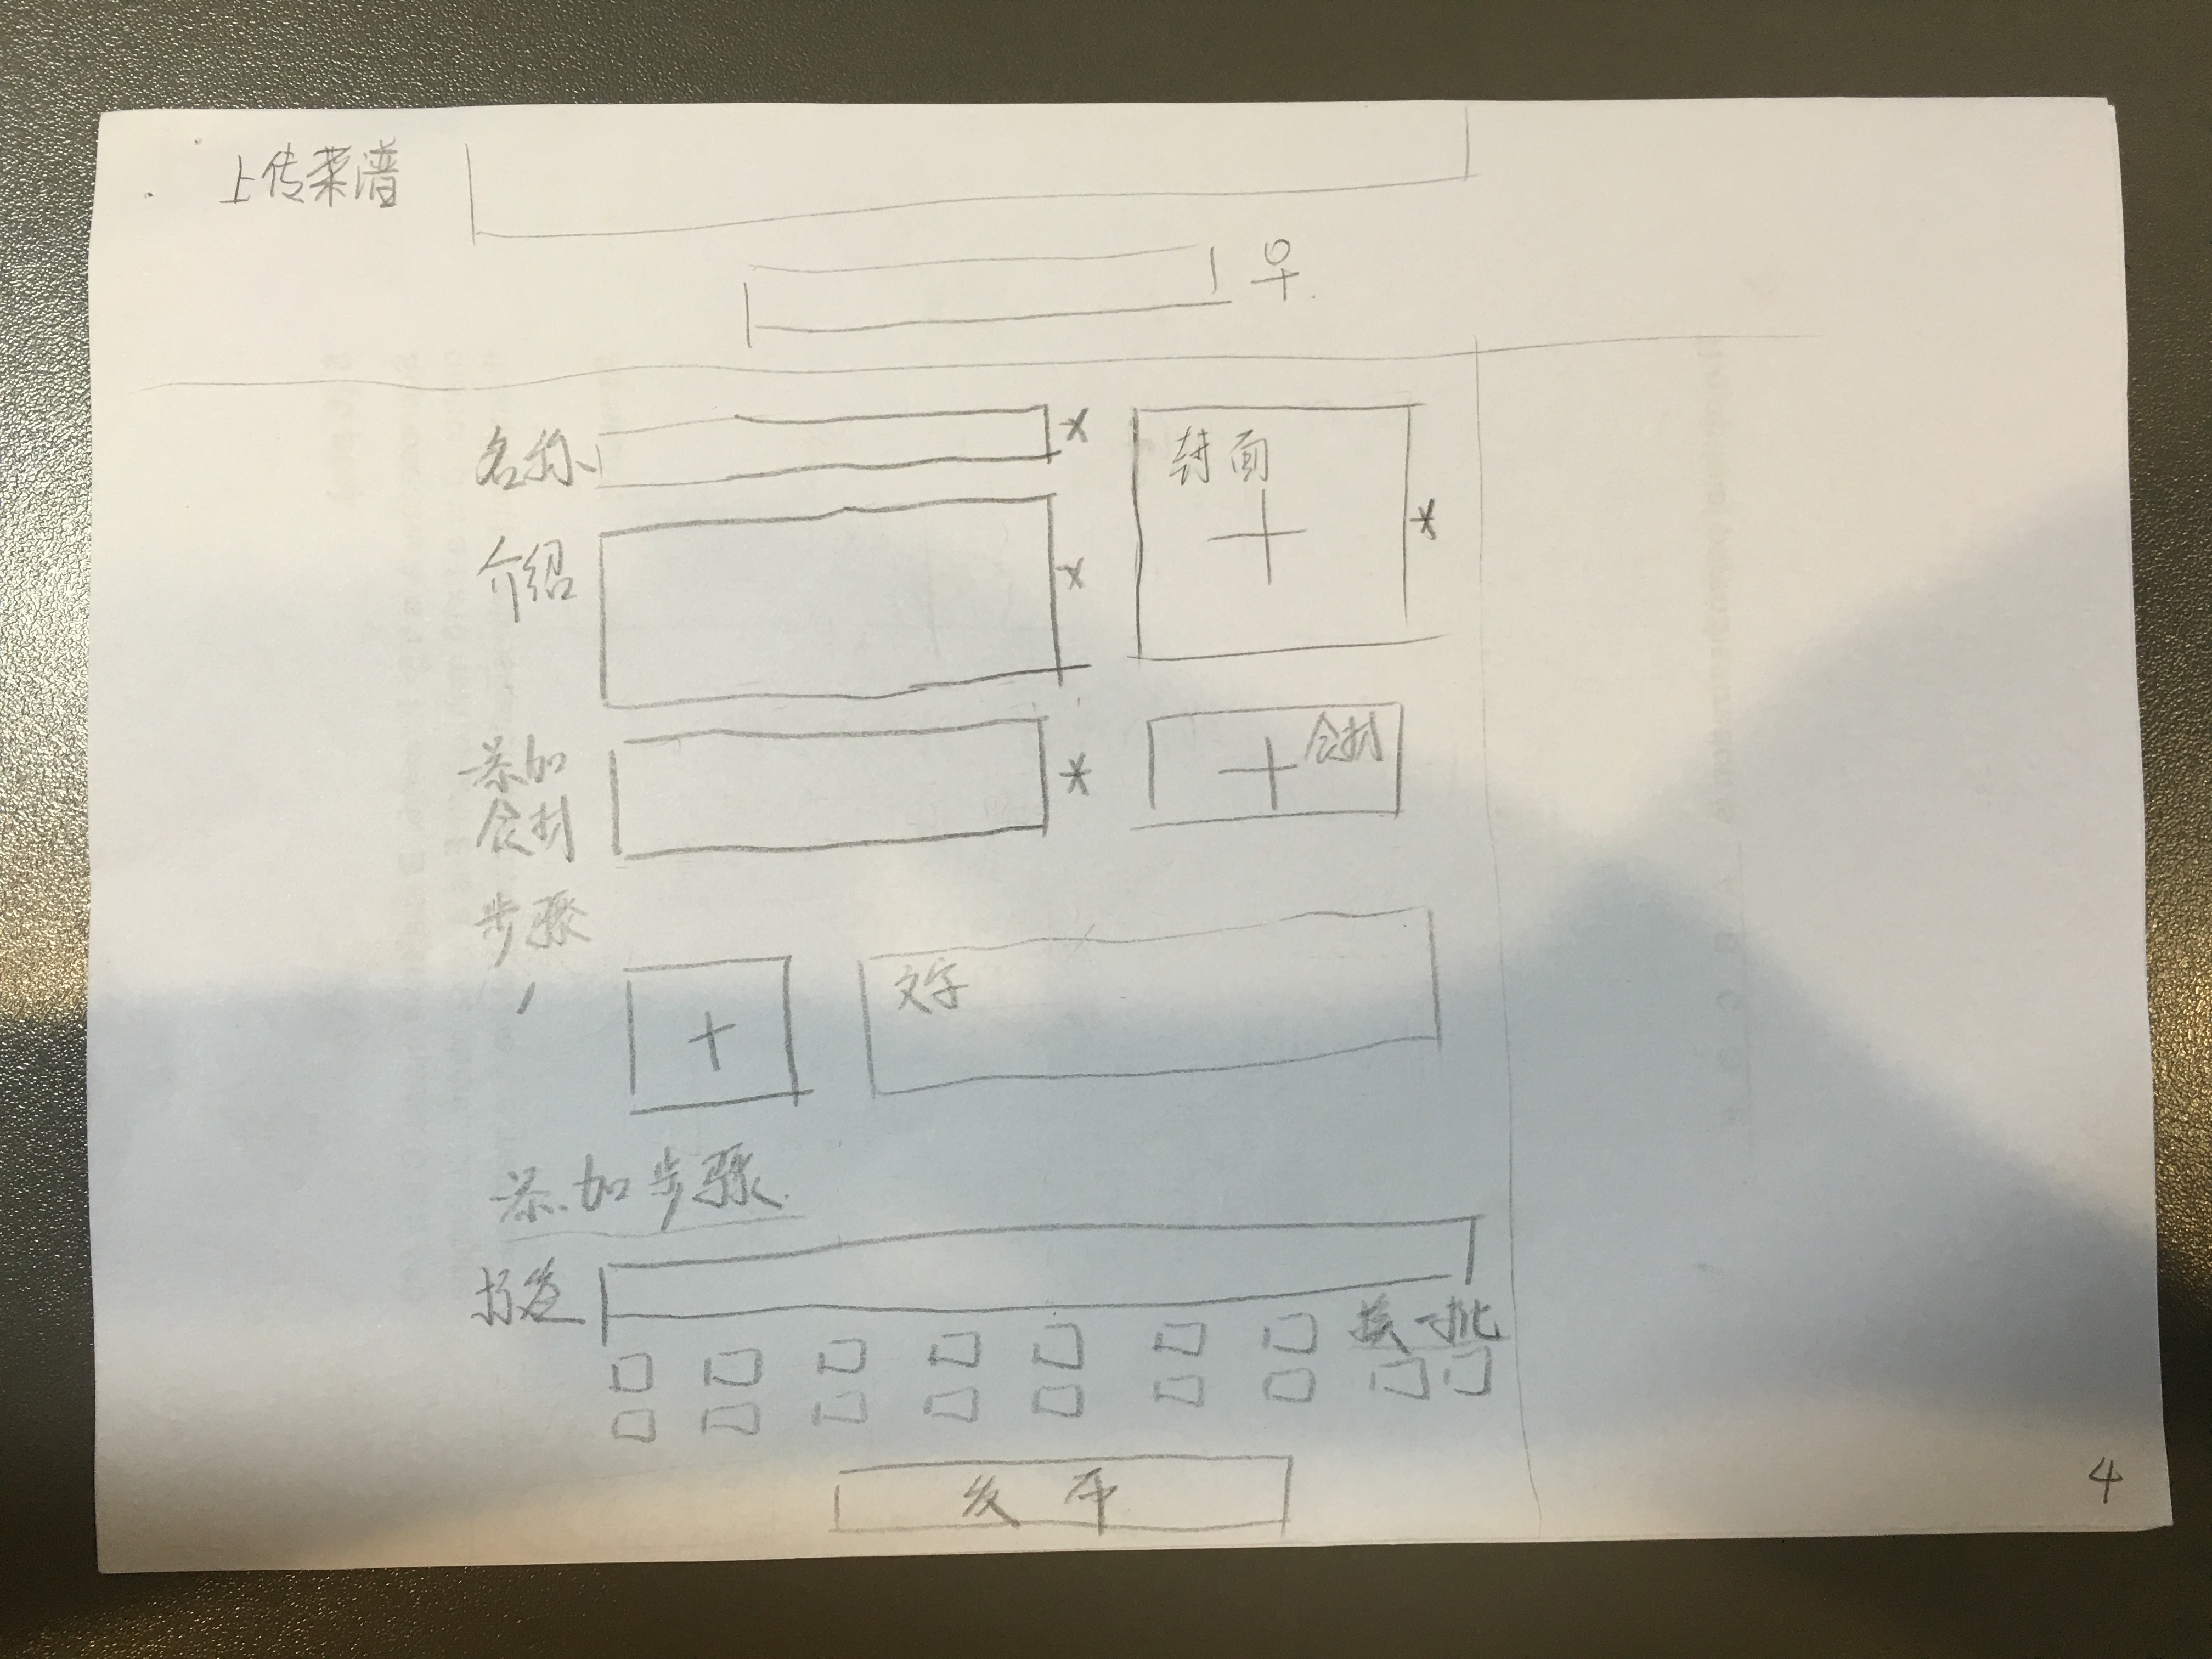 上传菜谱
名称
*
封面
*
介绍
*
添加
食材
*
食材
步骤
1
文字
添加步骤
标签
换一批
发布
4